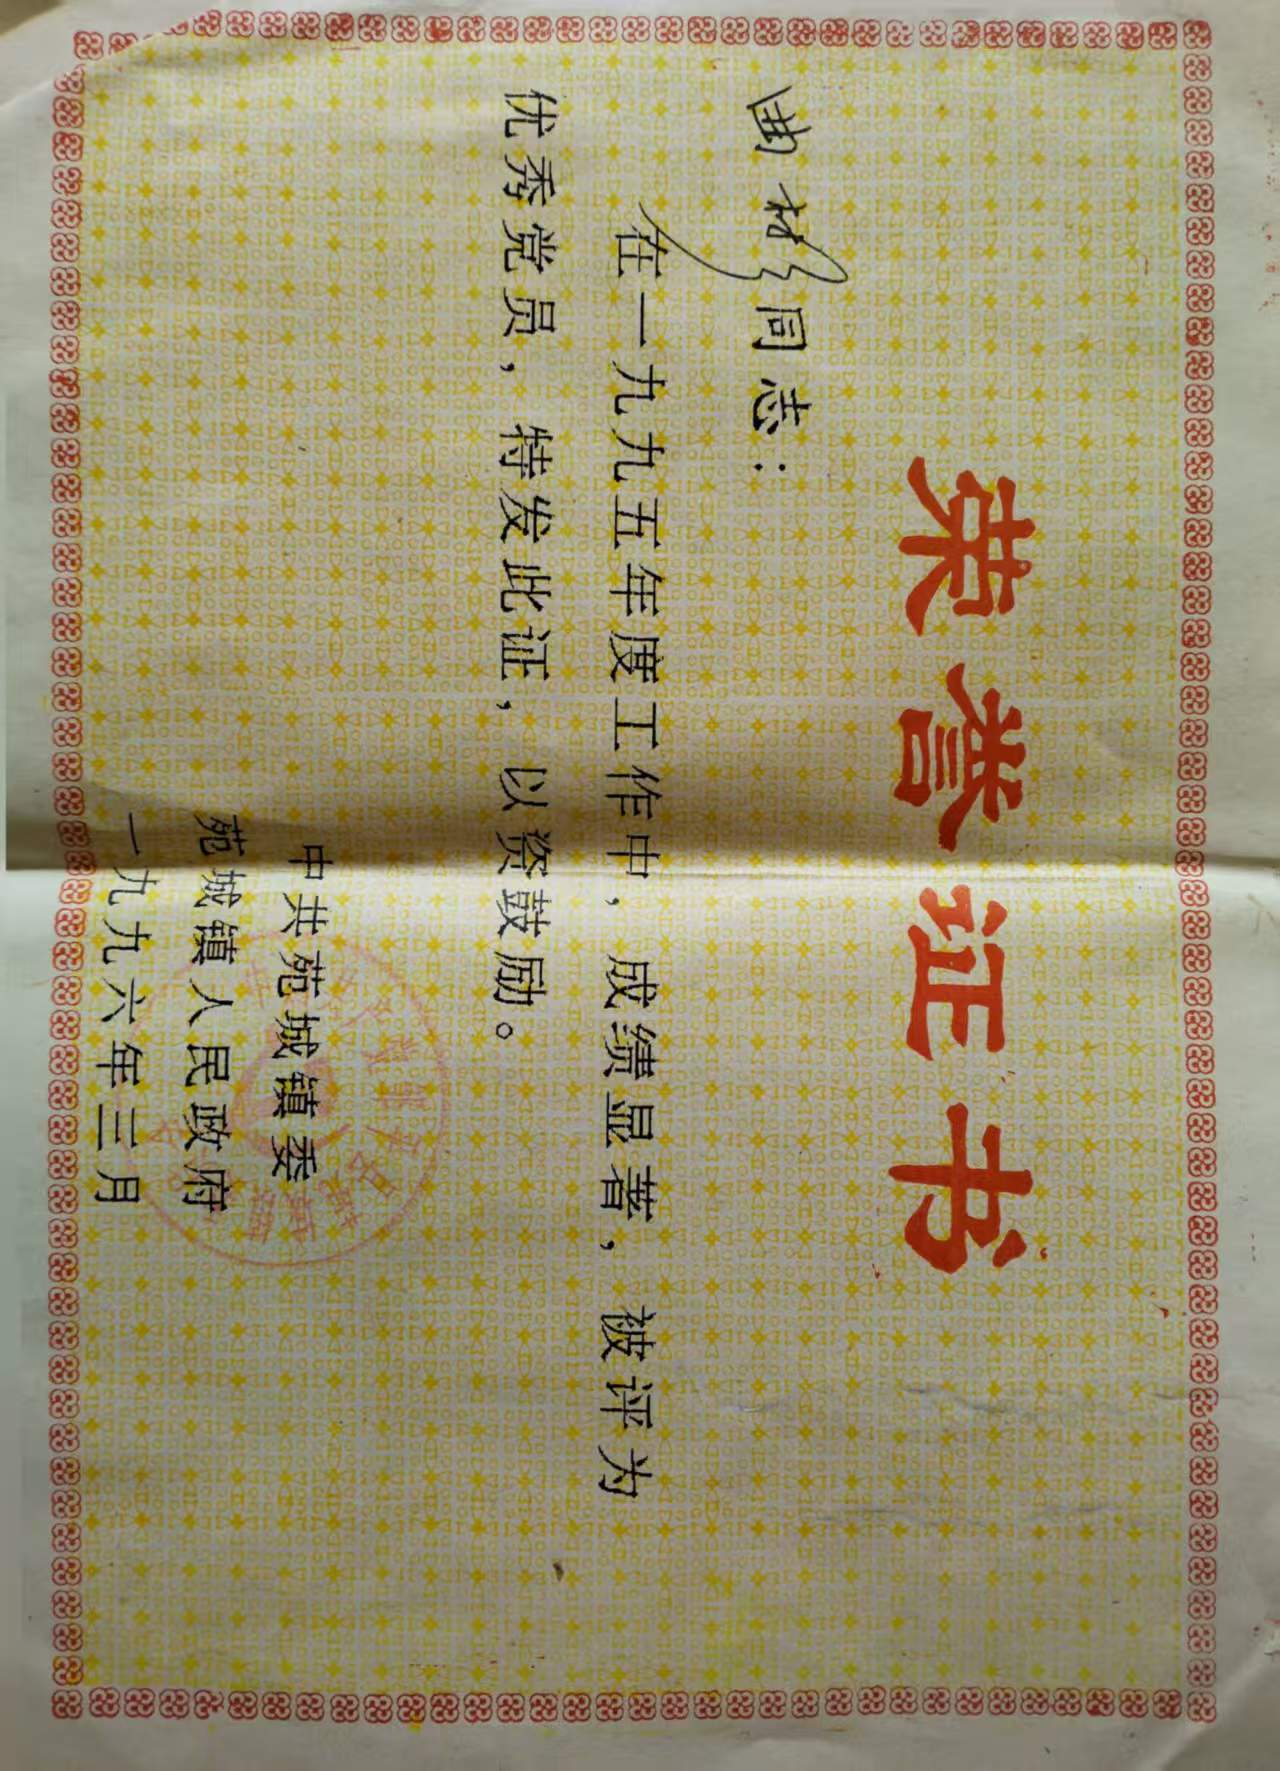 荣誉证书
曲 同志：
在一九九五年度工作中，成绩显著，被评为
优秀党员，特发此证，以资鼓励。
中共苑城镇委
苑城镇人民政府
一九九六年三月